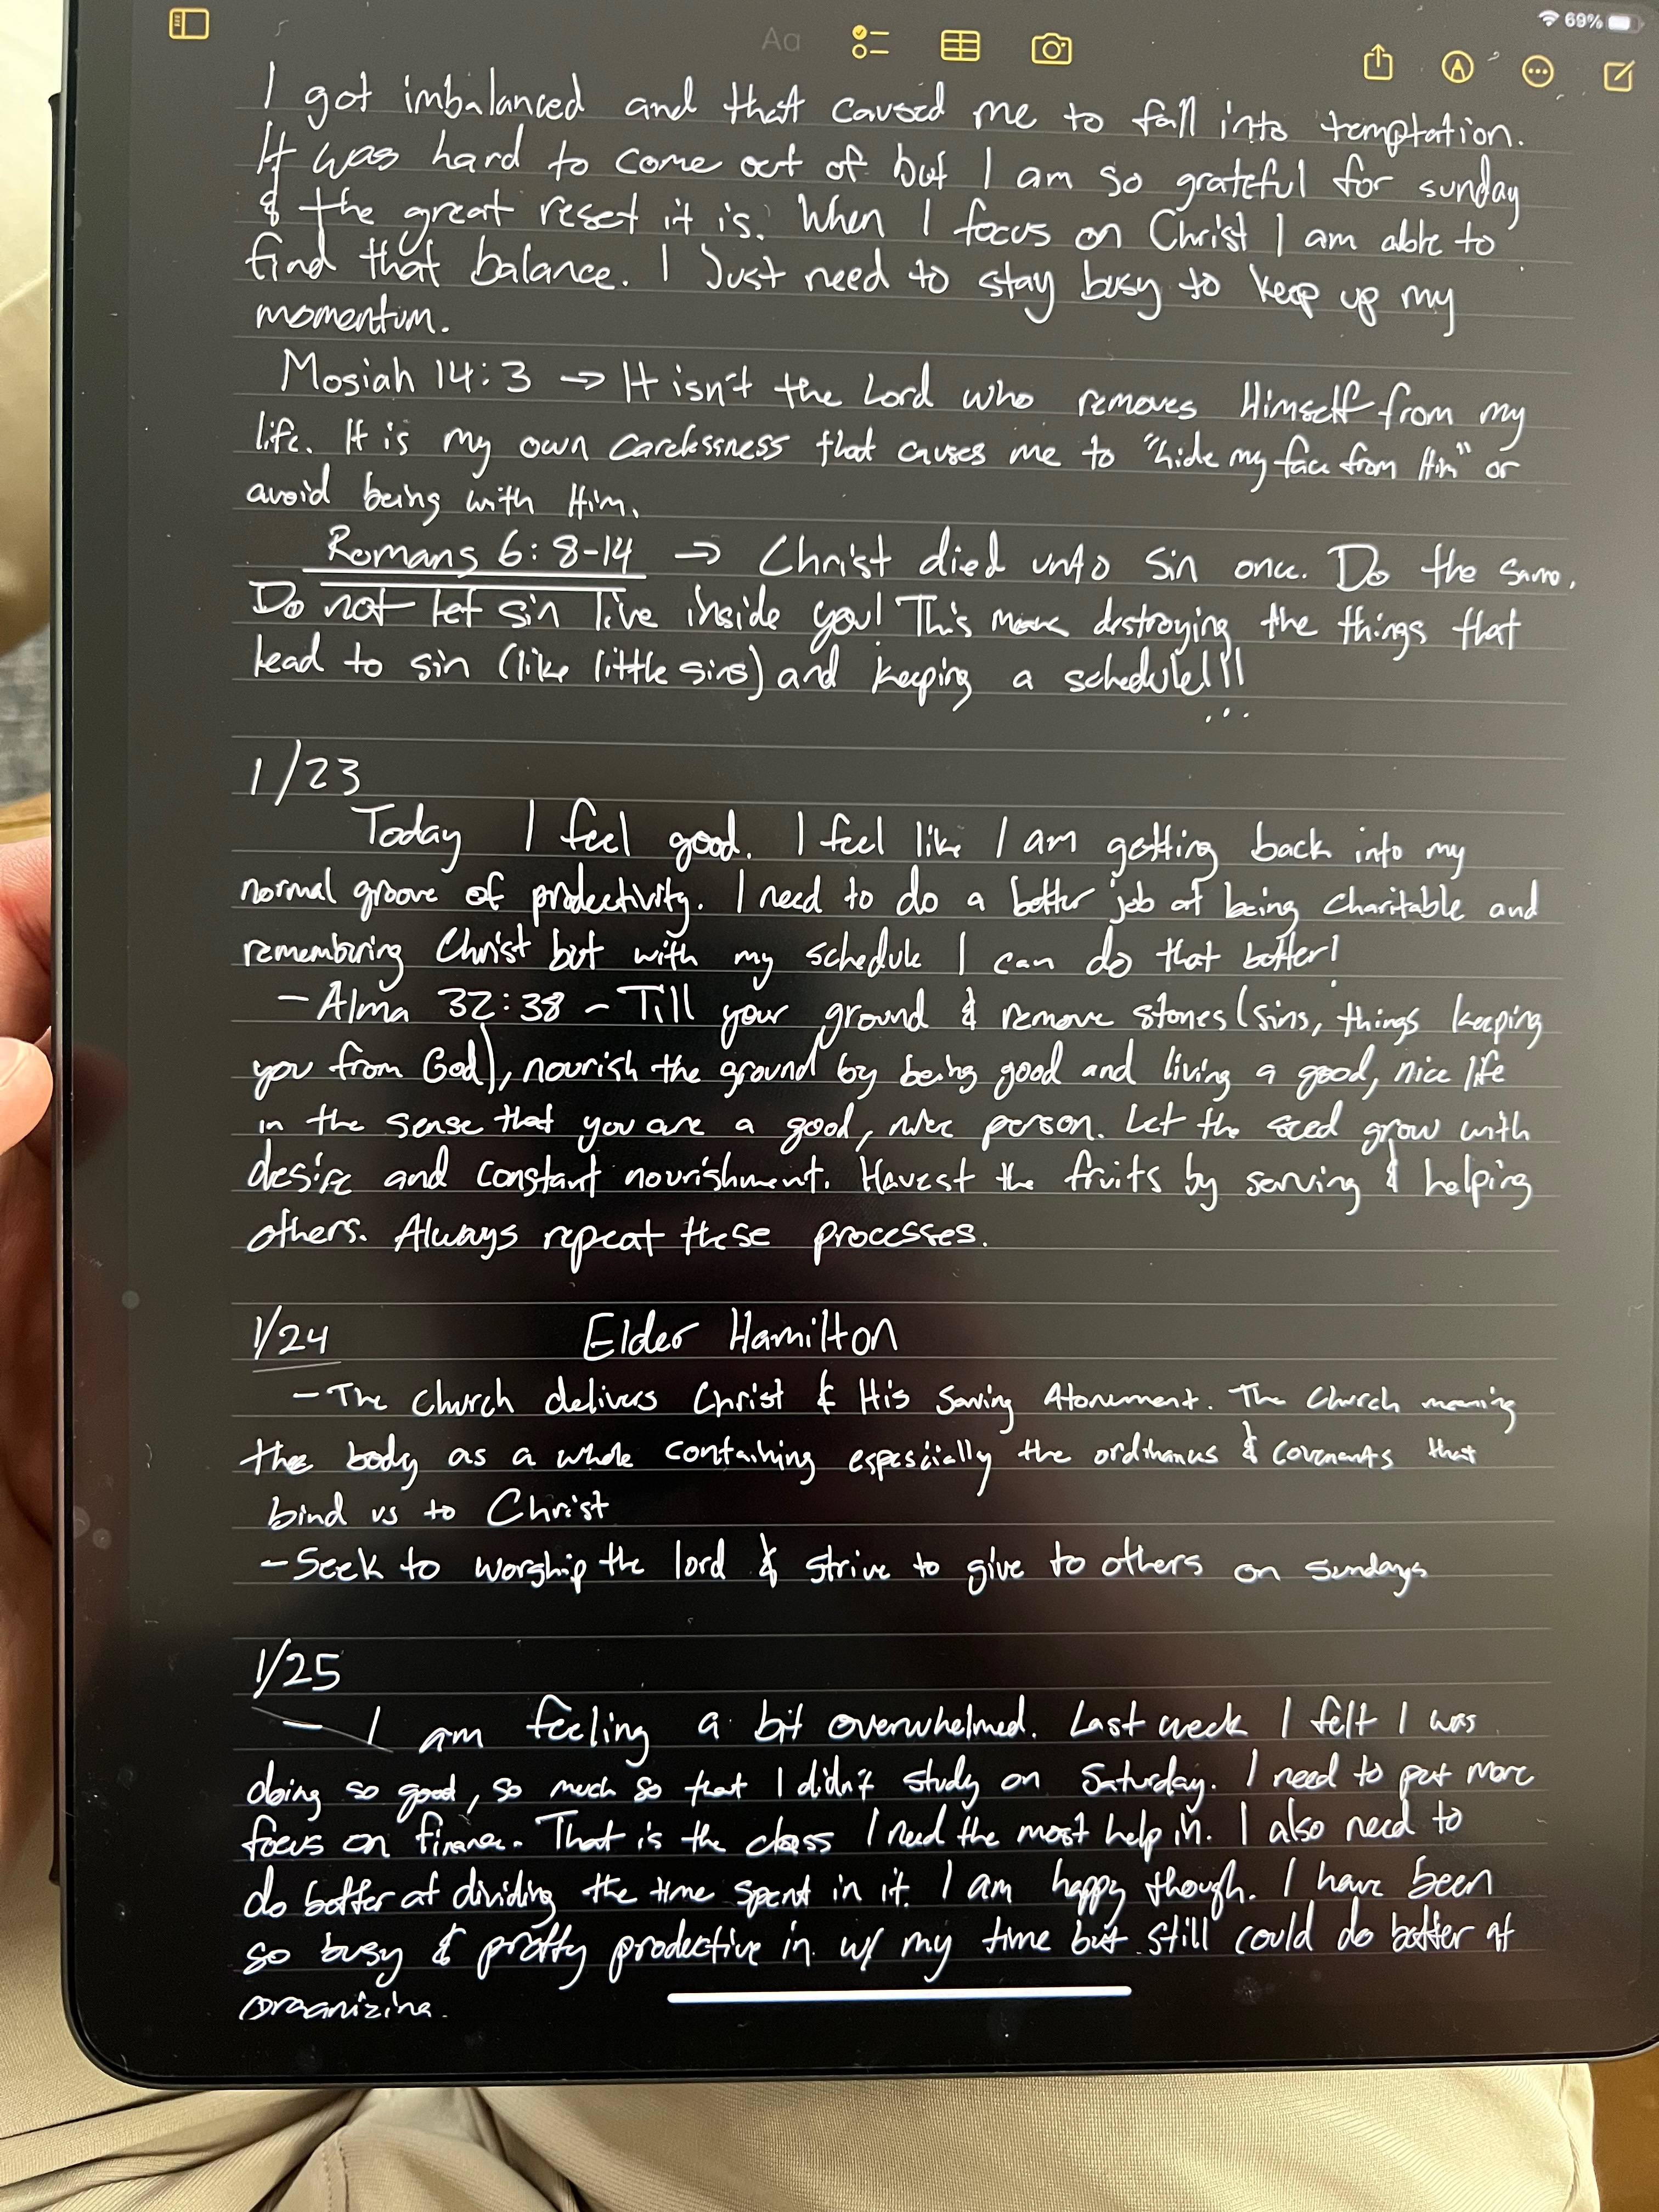 69%
Aa
I got imbalanced and that caused me to fall into temptation.
It was hard to come out of but I am so grateful for sunday
& the great reset it is. When I focus on Christ I am able to
find that balance. I Just need to stay busy to keep up my
momentum.
Mosiah 14:3 → It isn't the Lord who removes Himself from my
life. It is my own carelessness that causes me to "hide my face from Him" or
avoid being with Him.
Romans 6:8-14 → Christ died unto sin once. Do the same.
Do not let sin live inside you! This means destroying the things that
lead to sin (like little sins) and keeping a schedule!!!
...
1/23
Today I feel good. I feel like I am getting back into my
normal groove of productivity. I need to do a better job at being charitable and
remembering Christ but with my schedule I can do that better!
- Alma 32:38 - Till your ground & remove stones (sins, things keeping
you from God), nourish the ground by being good and living a good, nice life
in the sense that you are a good, nice person. Let the seed grow with
desire and constant nourishment. Havest the fruits by serving & helping
others. Always repeat these processes.
1/24 Elder Hamilton
- The church delivers Christ & His Saving Atonement. The Church meaning
the body as a whole containing espescially the ordinances & covenants that
bind us to Christ
- Seek to worship the lord & strive to give to others on sundays
1/25
- I am feeling a bit overwhelmed. Last week I felt I was
doing so good, so much so that I didn't study on Saturday. I need to put more
focus on finance. That is the class I need the most help in. I also need to
do better at dividing the time spent in it. I am happy though. I have been
so busy & pretty prodective in w/ my time but still could do better at
organizing.